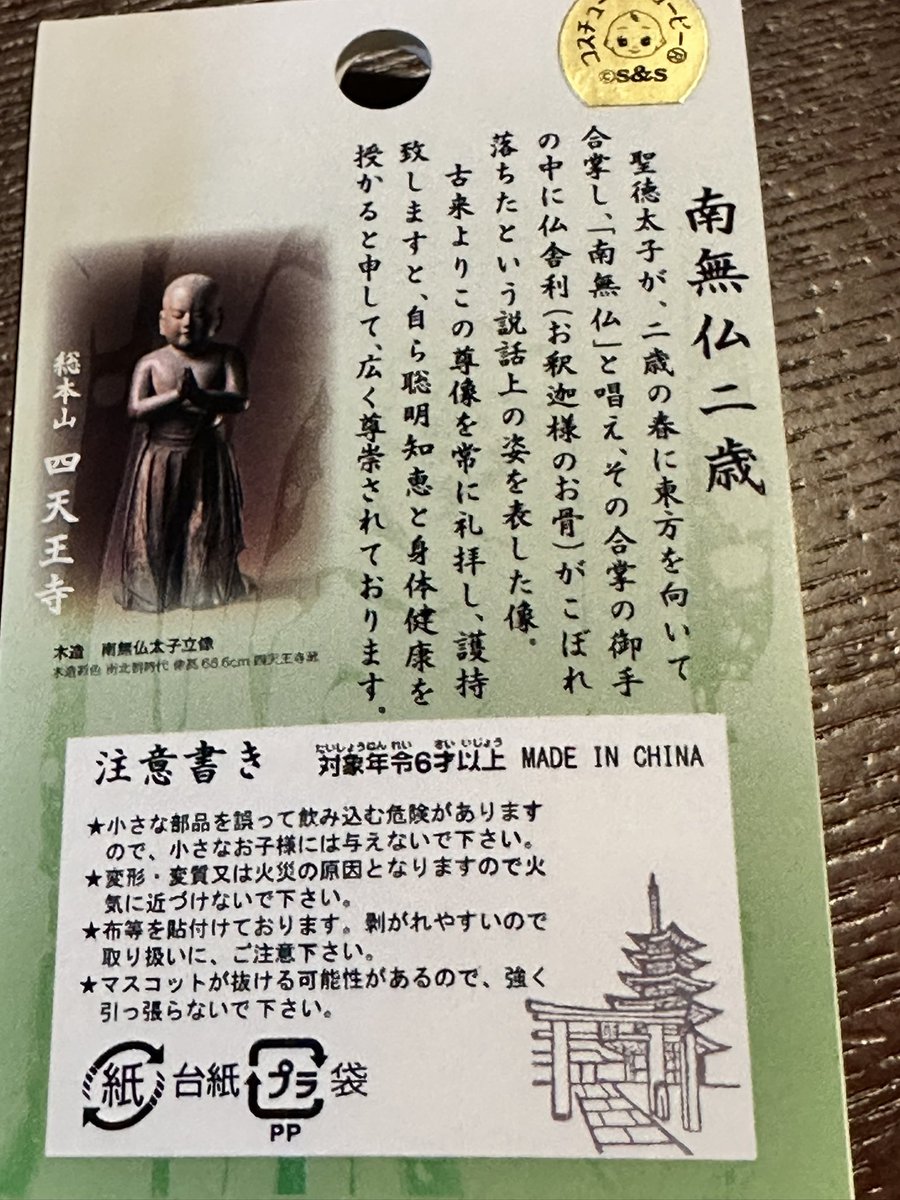 コスチュームキューピー
©S&S
南無仏二歳
聖徳太子が、二歳の春に東方を向いて
合掌し、「南無仏」と唱え、その合掌の御手
の中に仏舎利(お釈迦様のお骨)がこぼれ
落ちたという説話上の姿を表した像。
古来よりこの尊像を常に礼拝し、護持
致しますと、自ら聡明知恵と身体健康を
授かると申して、広く尊崇されております。
総本山 四天王寺
木造 南無仏太子立像
木造彩色 南北朝時代 像高 68.6cm 四天王寺蔵
注意書き
対象年令6才以上 MADE IN CHINA
★小さな部品を誤って飲み込む危険があります
ので、小さなお子様には与えないで下さい。
★変形・変質又は火災の原因となりますので火
気に近づけないで下さい。
★布等を貼付けております。剥がれやすいので
取り扱いに、ご注意下さい。
★マスコットが抜ける可能性があるので、強く
引っ張らないで下さい。
紙 台紙 プラ 袋
PP